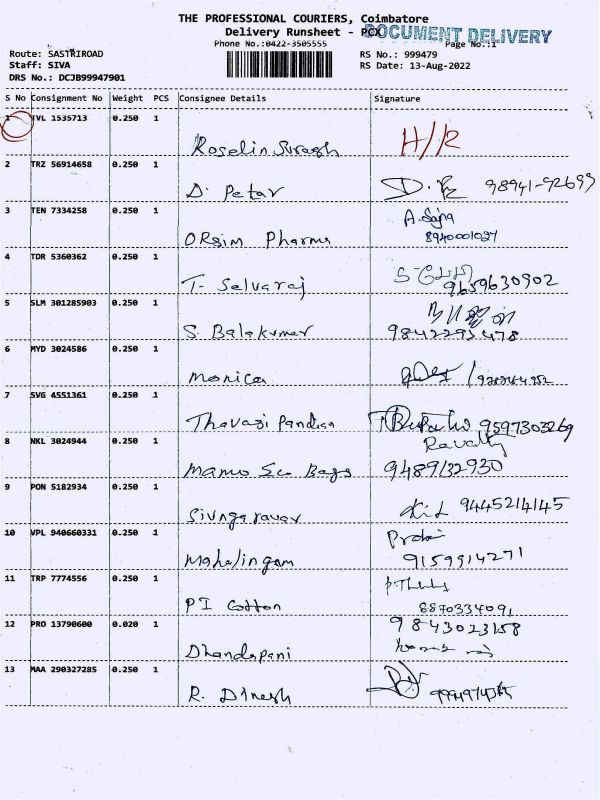 THE PROFESSIONAL COURIERS, Coimbatore
Delivery Runsheet - PCX DOCUMENT DELIVERY
Phone No.:0422-3505555 Page No.:1
Route: SASTRIROAD RS No.: 999479
Staff: SIVA RS Date: 13-Aug-2022
DRS No.: DCJB99947901
S No Consignment No Weight PCS Consignee Details Signature
1 TVL 1535713 0.250 1
Roselin Suresh H/R
2 TRZ 56914658 0.250 1
D. Peter 98941-92699
3 TEN 7334258 0.250 1 A. Saja
ORsim Pharma 8940001027
4 TDR 5360362 0.250 1
T. Selvaraj 9659630902
5 SLM 301285903 0.250 1
S. Balakumar 9842293478
6 MYD 3024586 0.250 1
Monica
7 SVG 4551361 0.250 1
Thavasi Pandian 9597303269
8 NKL 3024944 0.250 1
Mamo Su Bags 9489132930
9 PON 5182934 0.250 1
Sivngaravar 9445214145
10 VPL 940660331 0.250 1
Mahalingam 9159914271
11 TRP 7774556 0.250 1
PI Cotton 8870334091
12 PRO 13790600 0.020 1 9843023158
Dhandapani
13 MAA 290327285 0.250 1
R. Dinesh